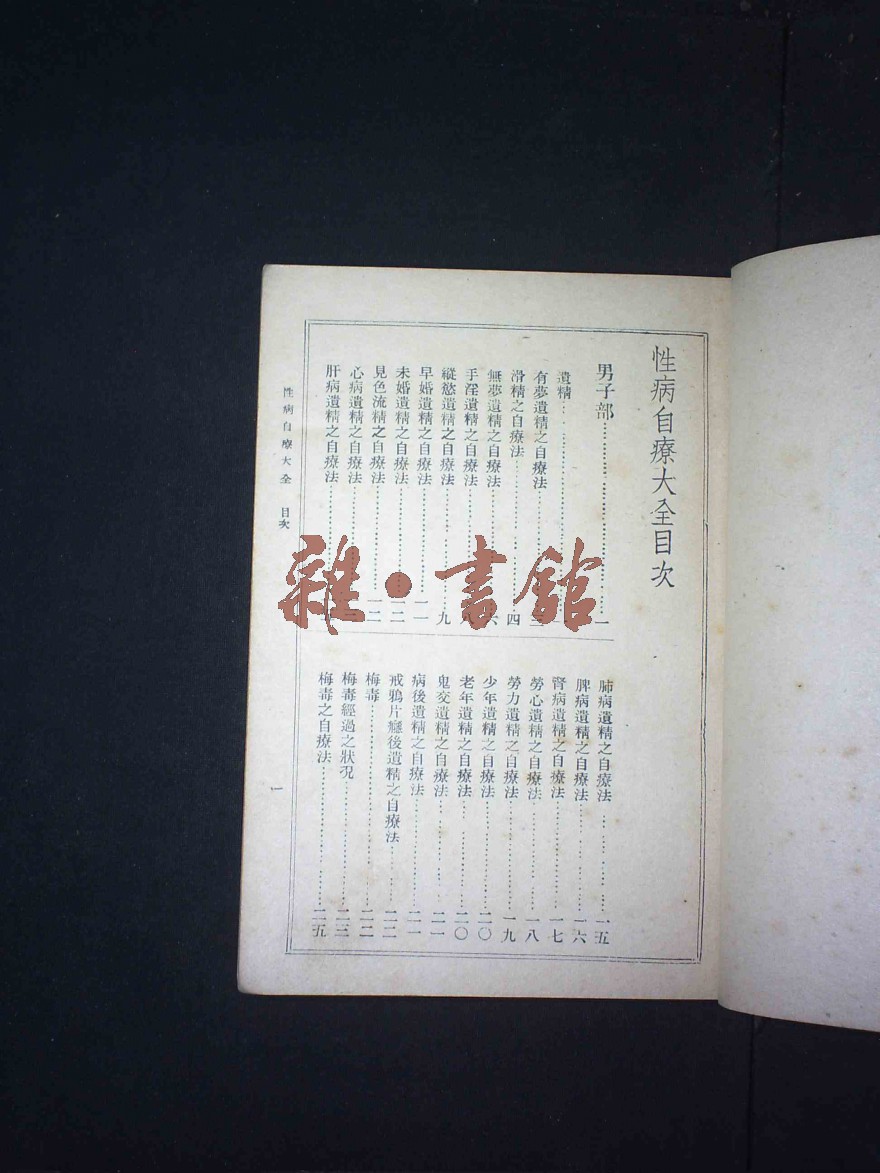 性病自療大全目次
男子部…………………一
遺精…………………
有夢遺精之自療法…………三
滑精之自療法…………四
無夢遺精之自療法…………六
手淫遺精之自療法…………八
縱慾遺精之自療法…………九
早婚遺精之自療法…………一一
未婚遺精之自療法…………一二
見色流精之自療法…………一二
心病遺精之自療法…………
肝病遺精之自療法…………
肺病遺精之自療法…………一五
脾病遺精之自療法…………一六
腎病遺精之自療法…………一七
勞心遺精之自療法…………一八
勞力遺精之自療法…………一九
少年遺精之自療法…………二〇
老年遺精之自療法…………二〇
鬼交遺精之自療法…………二一
病後遺精之自療法…………二一
戒鴉片癮後遺精之自療法……二二
梅毒…………………二二
梅毒經過之狀況…………二三
梅毒之自療法…………二五
性病自療大全 目次
一
雜·書館